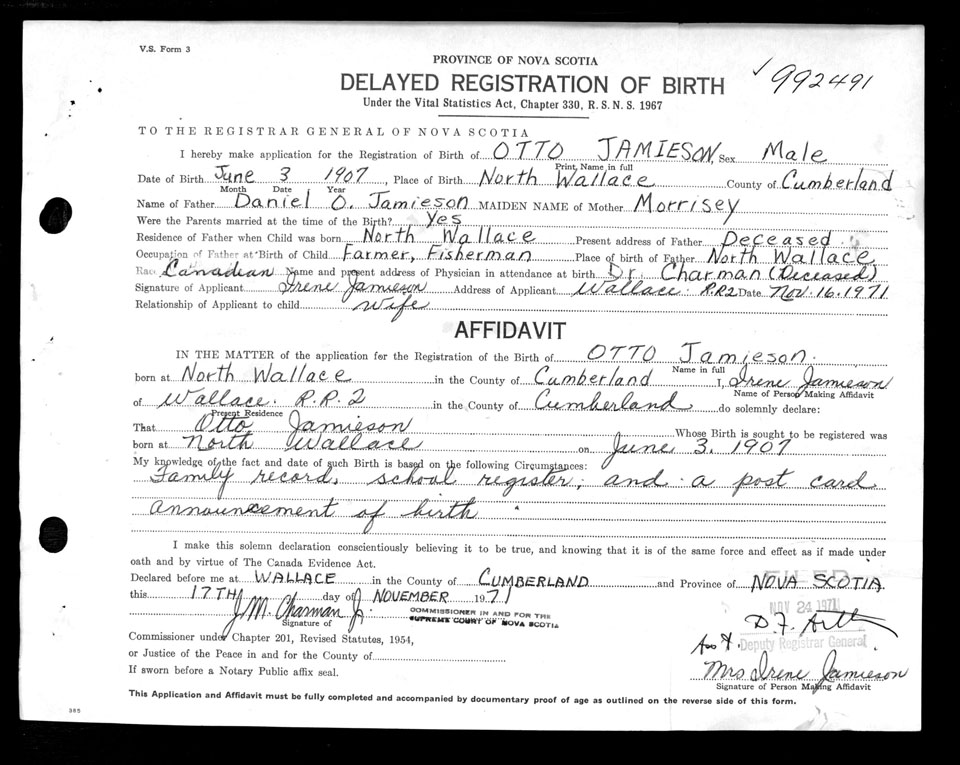 V.S. Form 3
PROVINCE OF NOVA SCOTIA
DELAYED REGISTRATION OF BIRTH
✓992491
Under the Vital Statistics Act, Chapter 330, R.S.N.S. 1967
TO THE REGISTRAR GENERAL OF NOVA SCOTIA
I hereby make application for the Registration of Birth of OTTO JAMIESON Sex Male
Print Name in full
Date of Birth June 3 1907, Place of Birth North Wallace County of Cumberland
Month Date Year
Name of Father Daniel O. Jamieson MAIDEN NAME of Mother Morrisey
Were the Parents married at the time of the Birth? Yes
Residence of Father when Child was born North Wallace Present address of Father Deceased
Occupation of Father at Birth of Child Farmer, Fisherman Place of birth of Father North Wallace
Race Canadian Name and present address of Physician in attendance at birth Dr. Charman (Deceased)
Signature of Applicant Irene Jamieson Address of Applicant Wallace. R.R.2 Date Nov. 16. 1971
Relationship of Applicant to child Wife
AFFIDAVIT
IN THE MATTER of the application for the Registration of the Birth of OTTO Jamieson.
Name in full
born at North Wallace in the County of Cumberland I, Irene Jamieson
Name of Person Making Affidavit
of Wallace. R.R.2 in the County of Cumberland do solemnly declare:
Present Residence
That Otto Jamieson Whose Birth is sought to be registered was
born at North Wallace on June 3, 1907
My knowledge of the fact and date of such Birth is based on the following Circumstances:
Family record, school register, and a post card
announcement of birth
I make this solemn declaration conscientiously believing it to be true, and knowing that it is of the same force and effect as if made under
oath and by virtue of The Canada Evidence Act.
Declared before me at WALLACE in the County of CUMBERLAND and Province of NOVA SCOTIA
FILED
this 17TH day of NOVEMBER 1971
NOV 24 1971
J.M. Charman Jr.
COMMISSIONER IN AND FOR THE
SUPREME COURT OF NOVA SCOTIA
Signature of
D.F.
Commissioner under Chapter 201, Revised Statutes, 1954,
Deputy Registrar General
or Justice of the Peace in and for the County of
If sworn before a Notary Public affix seal.
Mrs Irene Jamieson
Signature of Person Making Affidavit
This Application and Affidavit must be fully completed and accompanied by documentary proof of age as outlined on the reverse side of this form.
385